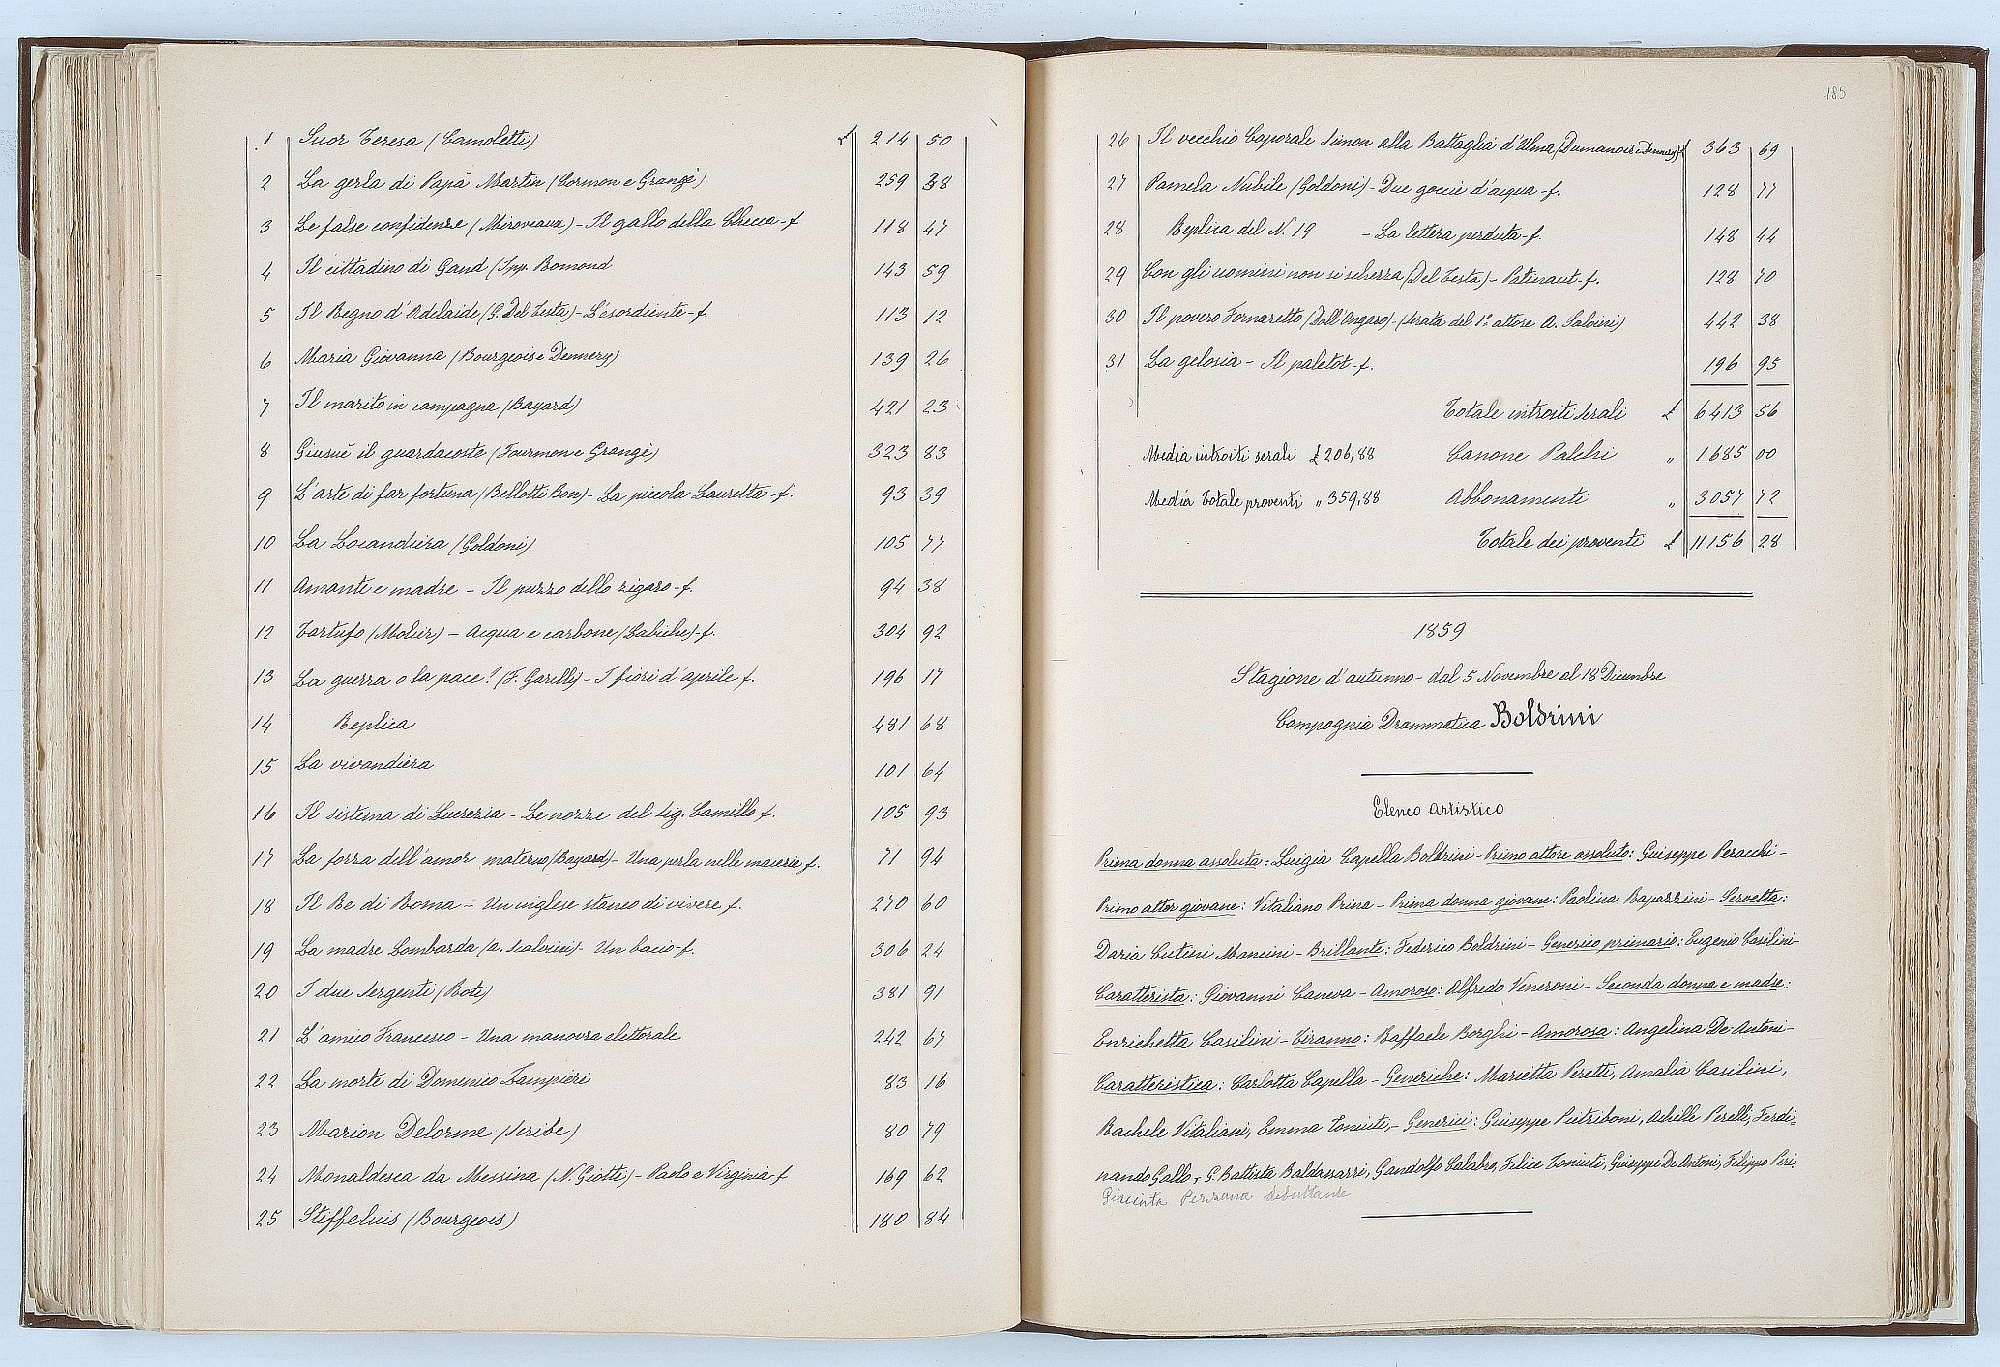 1 Suor Teresa (Camoletti) £ 214 50
2 La gerla di Papà Martin (Cormon e Grangè) 259 38
3 Le false confidenze (Miroveaux) - Il gallo della Checca - f 118 47
4 Il cittadino di Gand (Ipp. Romond 143 59
5 Il Regno d'Adelaide (G. Del Testa) - L'esordiente - f 113 12
6 Maria Giovanna (Bourgeois e Dennery) 139 26
7 Il marito in campagna (Bayard) 421 23
8 Giusuè il guardacoste (Fourmon e Grangè) 323 83
9 L'arte di far fortuna (Bellotti Bon) - La piccola Lauretta - f. 93 39
10 La Locandiera (Goldoni) 105 77
11 Amante e madre - Il puzzo dello zigaro - f. 94 38
12 Tartufo (Molier) - Acqua e carbone (Labiche) - f. 304 92
13 La guerra o la pace? (F. Garelli) - I fiori d'aprile f. 196 17
14 Replica 481 68
15 La vivandiera 101 64
16 Il sistema di Lucrezia - Le nozze del Sig. Camillo f. 105 93
17 La forza dell'amor materno (Bayard) - Una perla nelle macerie f. 71 94
18 Il Re di Roma - Un inglese stanco di vivere f. 270 60
19 La madre Lombarda (A. Scalvini) - Un bacio - f. 306 24
20 I due Sergenti (Roti) 381 91
21 L'amico Francesco - Una manovra elettorale 242 67
22 La morte di Domenico Zampieri 83 16
23 Marion Delorme (Scribe) 80 79
24 Monaldesca da Messina (N. Giotti) - Paolo e Virginia - f 169 62
25 Stiffelius (Bourgeois) 180 84
185
26 Il vecchio Caporale Simon alla Battaglia d'Ulma (Dumanoir e Dennery) £ 363 69
27 Pamela Nubile (Goldoni) - Due goccie d'acqua - f. 128 77
28 Replica del N. 19 - La lettera perduta - f. 148 44
29 Con gli uomini non si scherza (Del Testa) - Patineaut - f. 128 70
30 Il povero Fornaretto (Dall'Ongaro) - (serata del 1° attore A. Salvini) 442 38
31 La gelosia - Il paletot - f. 196 95
Totale introiti serali £ 6413 56
Media introiti serali £ 206,88 Canone Palchi " 1685 00
Media Totale proventi " 359,88 Abbonamenti " 3057 72
Totale dei proventi £ 11156 28
1859
Stagione d'autunno - dal 5 Novembre al 18 Dicembre
Compagnia Drammatica Boldrini
Elenco artistico
Prima donna assoluta: Luigia Capella Boldrini - Primo attore assoluto: Giuseppe Peracchi -
Primo attor giovane: Vitaliano Prina - Prima donna giovane: Paolina Rapazzini - Servetta:
Daria Cutini Mancini - Brillante: Federico Boldrini - Generico primario: Eugenio Casilini -
Caratterista: Giovanni Caneva - Amoroso: Alfredo Veneroni - Seconda donna e madre:
Enrichetta Casilini - Tiranno: Raffaele Borghi - Amorosa: Angelina De-Antoni -
Caratteristica: Carlotta Capella - Generiche: Marietta Peretti, Amalia Casilini,
Rachele Vitaliani, Emma Toniuti, - Generici: Giuseppe Pietriboni, Achille Perelli, Ferdi-
nando Gallo, G. Battista Baldassarri, Gandolfo Calabro, Felice Toniuti, Giuseppe De Antoni, Filippo Piri.
Giacinta Pezzana debuttante